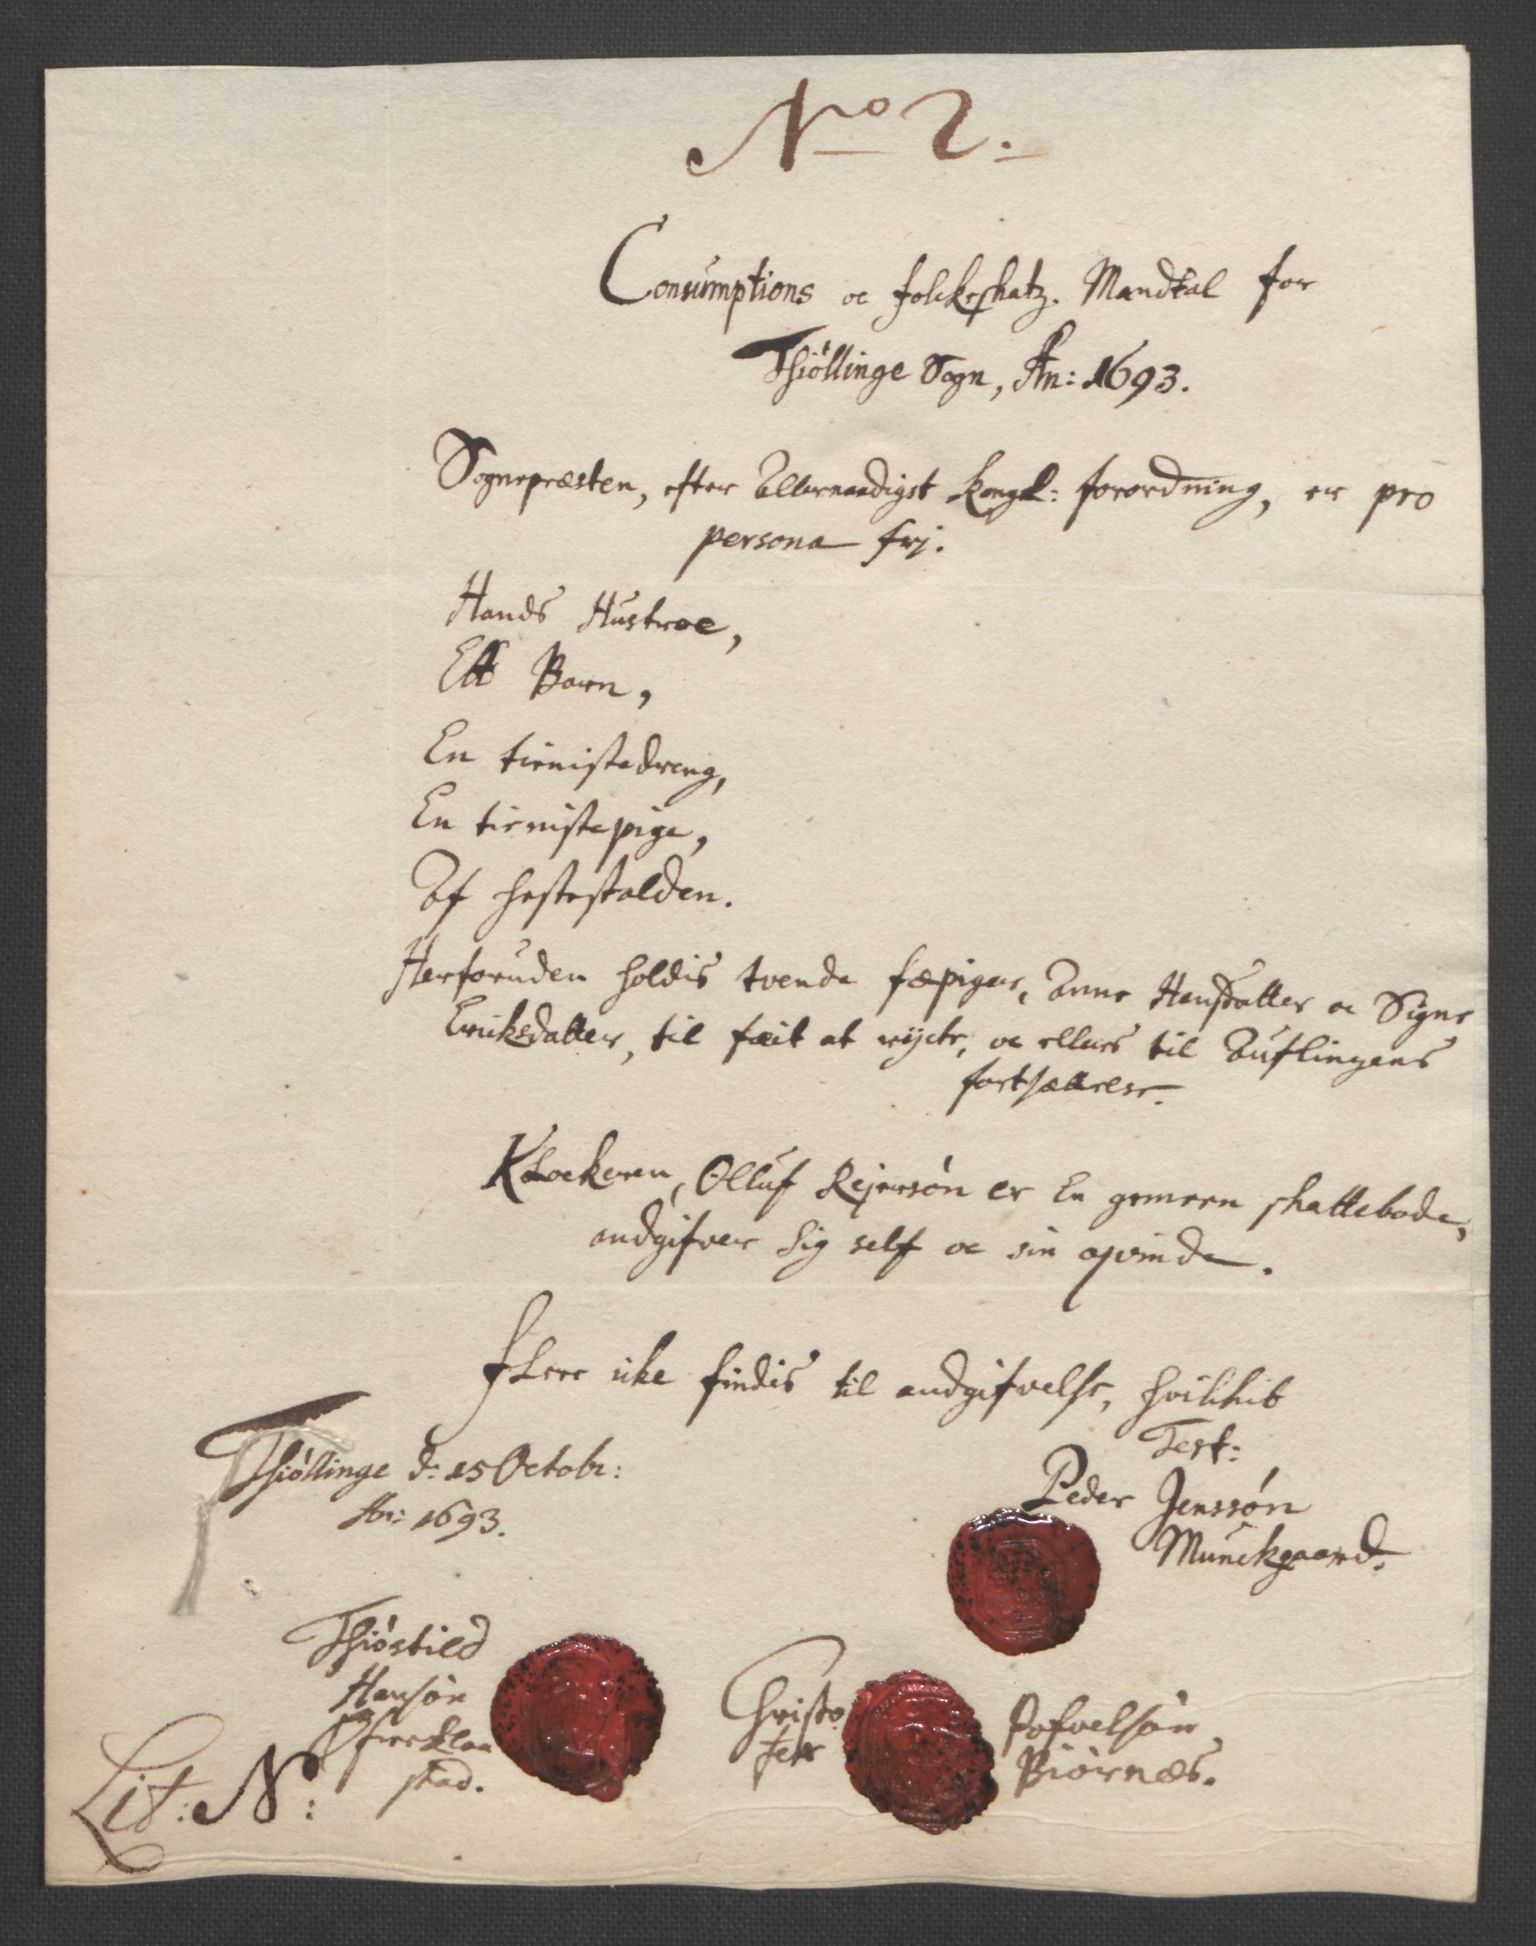 No 2.
Consumptions oc folckeskatz. Mandtal for
Thiøllinge Sogn, An: 1693.
Sognepræsten, efter Allernaadigst kongl: forordning, er pro
persona frj.
Hands Hustroe,
Ett Barn,
En tienistedreng,
En tienistepige,
Af hestestalden.
Herforuden holdis tvende fæpiger, Anne Hansdatter oc Signe
Eriksdatter, til fæit at røcte, oc ellers til Auflingens
fortsættelse.
Klockeren, Olluf Rejersøn er En gemeen skattebode,
andgifver sig self oc sin qvinde.
Flere icke findis til andgifvelse, hvilkit
Test:
Peder Jenssøn
Munckgaard.
Thiøllinge d: 15 Octobr:
An: 1693.
Thiøstild
Hansøn
skad.
Christo
fer
Pofvelsøn,
Biørnæs.
Lit: N: